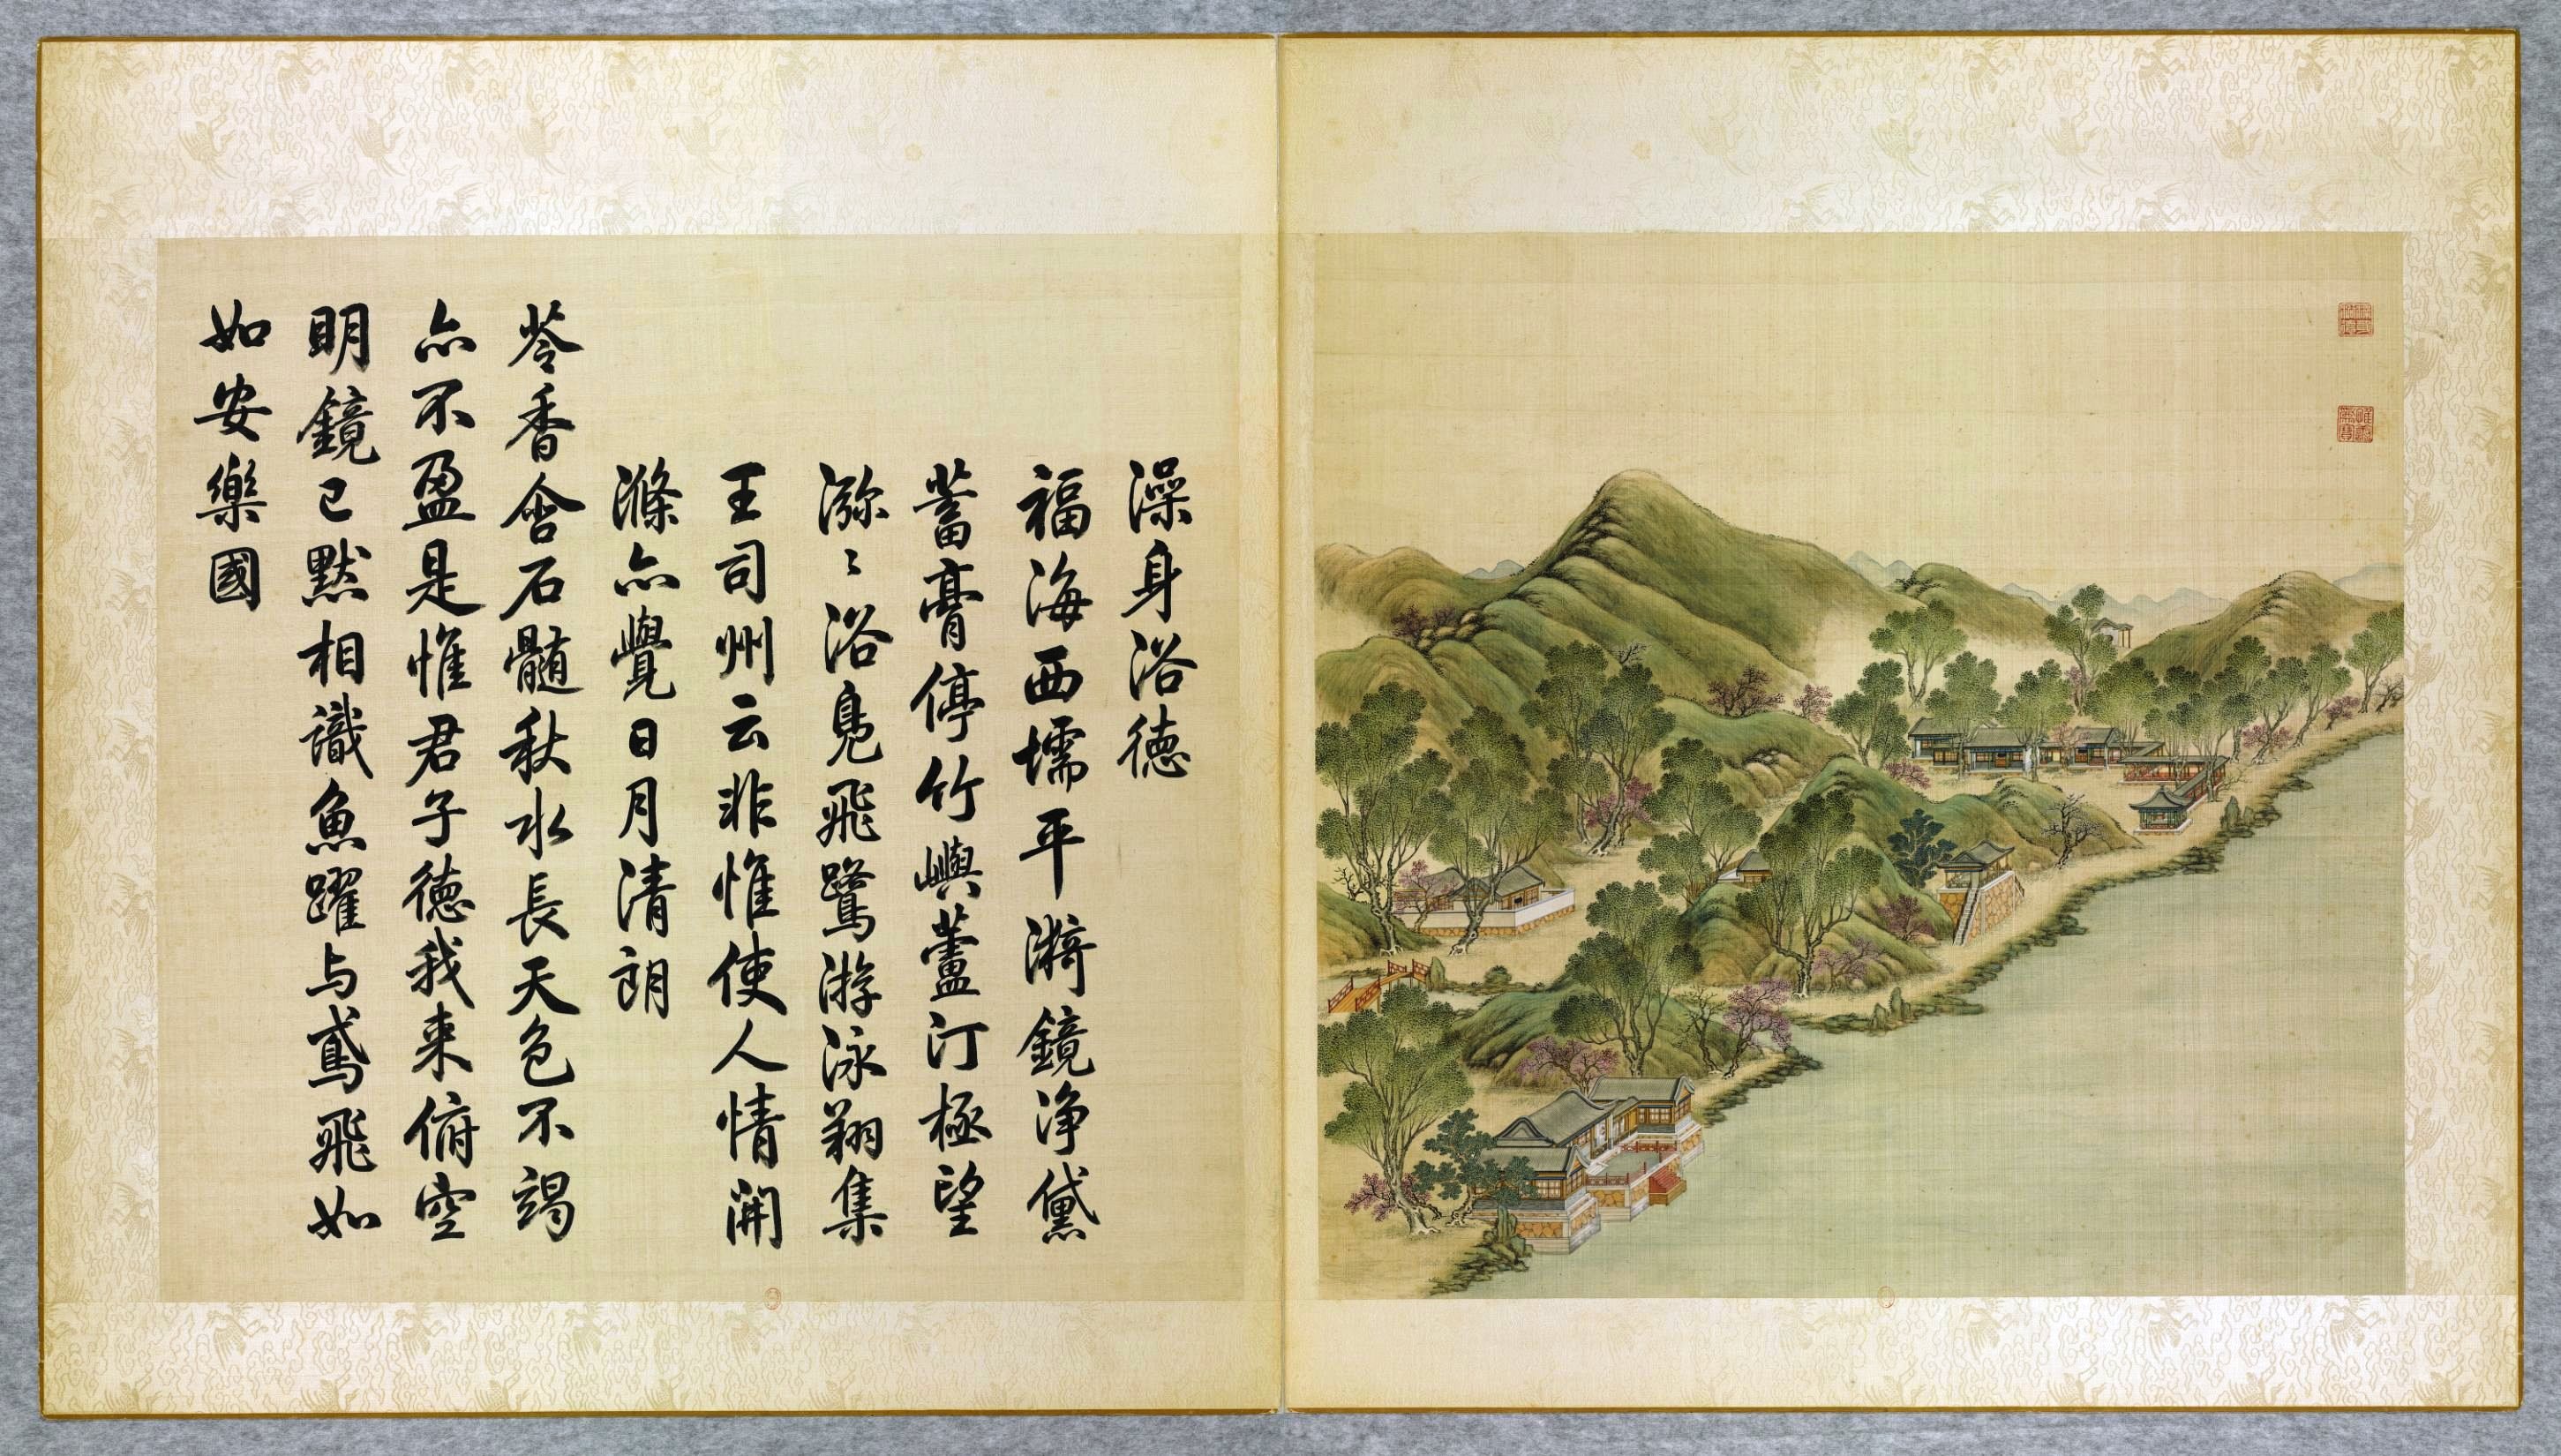 澡身浴德
福海西壖平漪鏡淨黛
蓄膏停竹嶼蘆汀極望
瀰〻浴鳧飛鷺游泳翔集
王司州云非惟使人情開
滌亦覺日月清朗
苓香含石髓秋水長天色不竭
亦不盈是惟君子德我来俯空
明鏡已默相識魚躍与鳶飛如
如安樂國